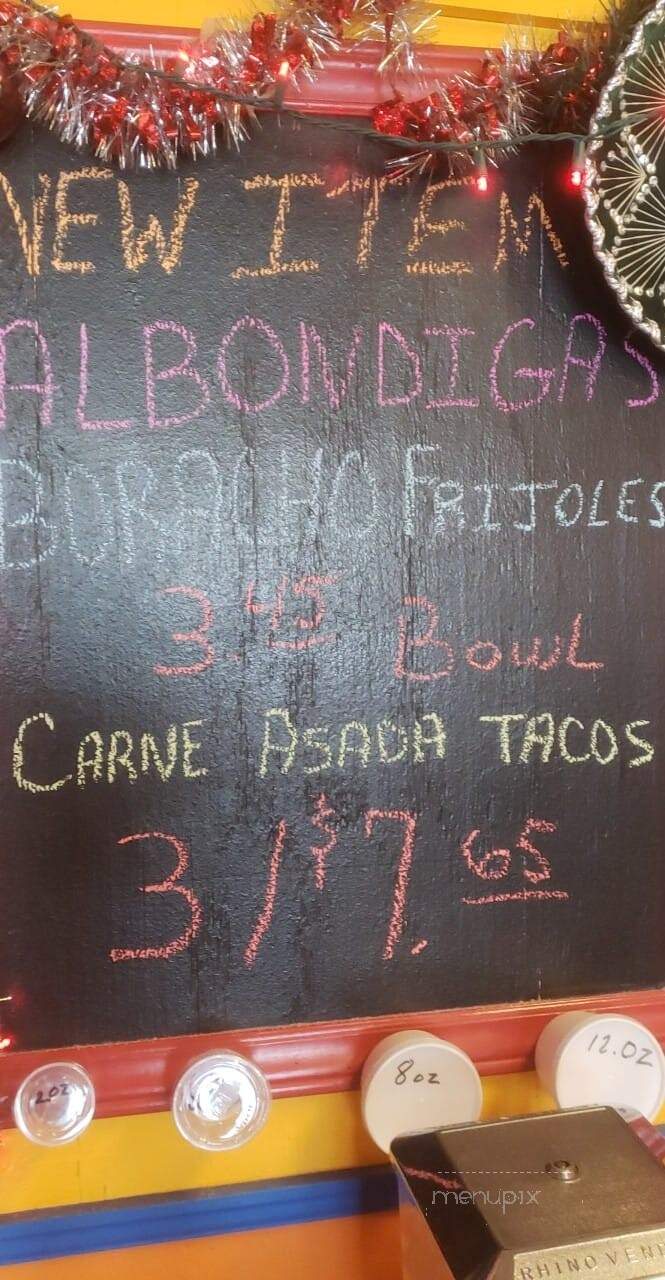 NEW ITEM
ALBONDIGAS
BORACHO FRIJOLES
3.45 BOWL
CARNE ASADA TACOS
3/$7.65
2oz
8oz
12.oz
menupix
RHINO VEND